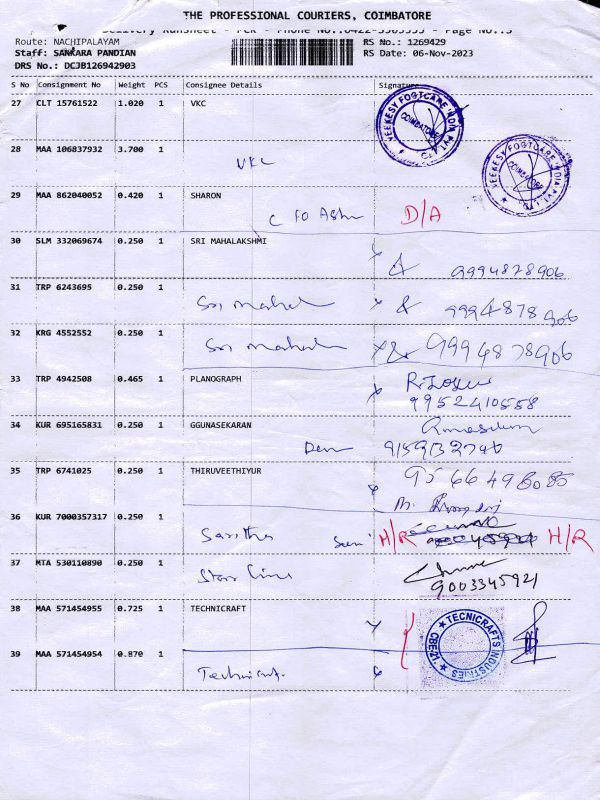 THE PROFESSIONAL COURIERS, COIMBATORE
Delivery Runsheet - PCR - Phone No.:0422-3503333 - Page No.:3
Route: NACHIPALAYAM
RS No.: 1269429
Staff: SANKARA PANDIAN
RS Date: 06-Nov-2023
DRS No.: DCJB126942903
S No Consignment No Weight PCS Consignee Details Signature
27 CLT 15761522 1.020 1 VKC
VEEKESY FOOTCARE INDIA PVT. COIMBATORE
28 MAA 106837932 3.700 1
VKC
VEEKESY FOOTCARE INDIA PVT. COIMBATORE
29 MAA 862040052 0.420 1 SHARON
D/A
30 SLM 332069674 0.250 1 SRI MAHALAKSHMI
9994878906
31 TRP 6243695 0.250 1
Sri mahal 9994878906
32 KRG 4552552 0.250 1
Sri mahal 9994878906
33 TRP 4942508 0.465 1 PLANOGRAPH
9952410558
34 KUR 695165831 0.250 1 GGUNASEKARAN
35 TRP 6741025 0.250 1 THIRUVEETHIYUR
36 KUR 7000357317 0.250 1
Saritha H/R H/R
37 MTA 530110890 0.250 1
Starr line
9003345921
38 MAA 571454955 0.725 1 TECHNICRAFT
TECNICRAFTS INDUSTRIES
39 MAA 571454954 0.870 1
Technicraft.